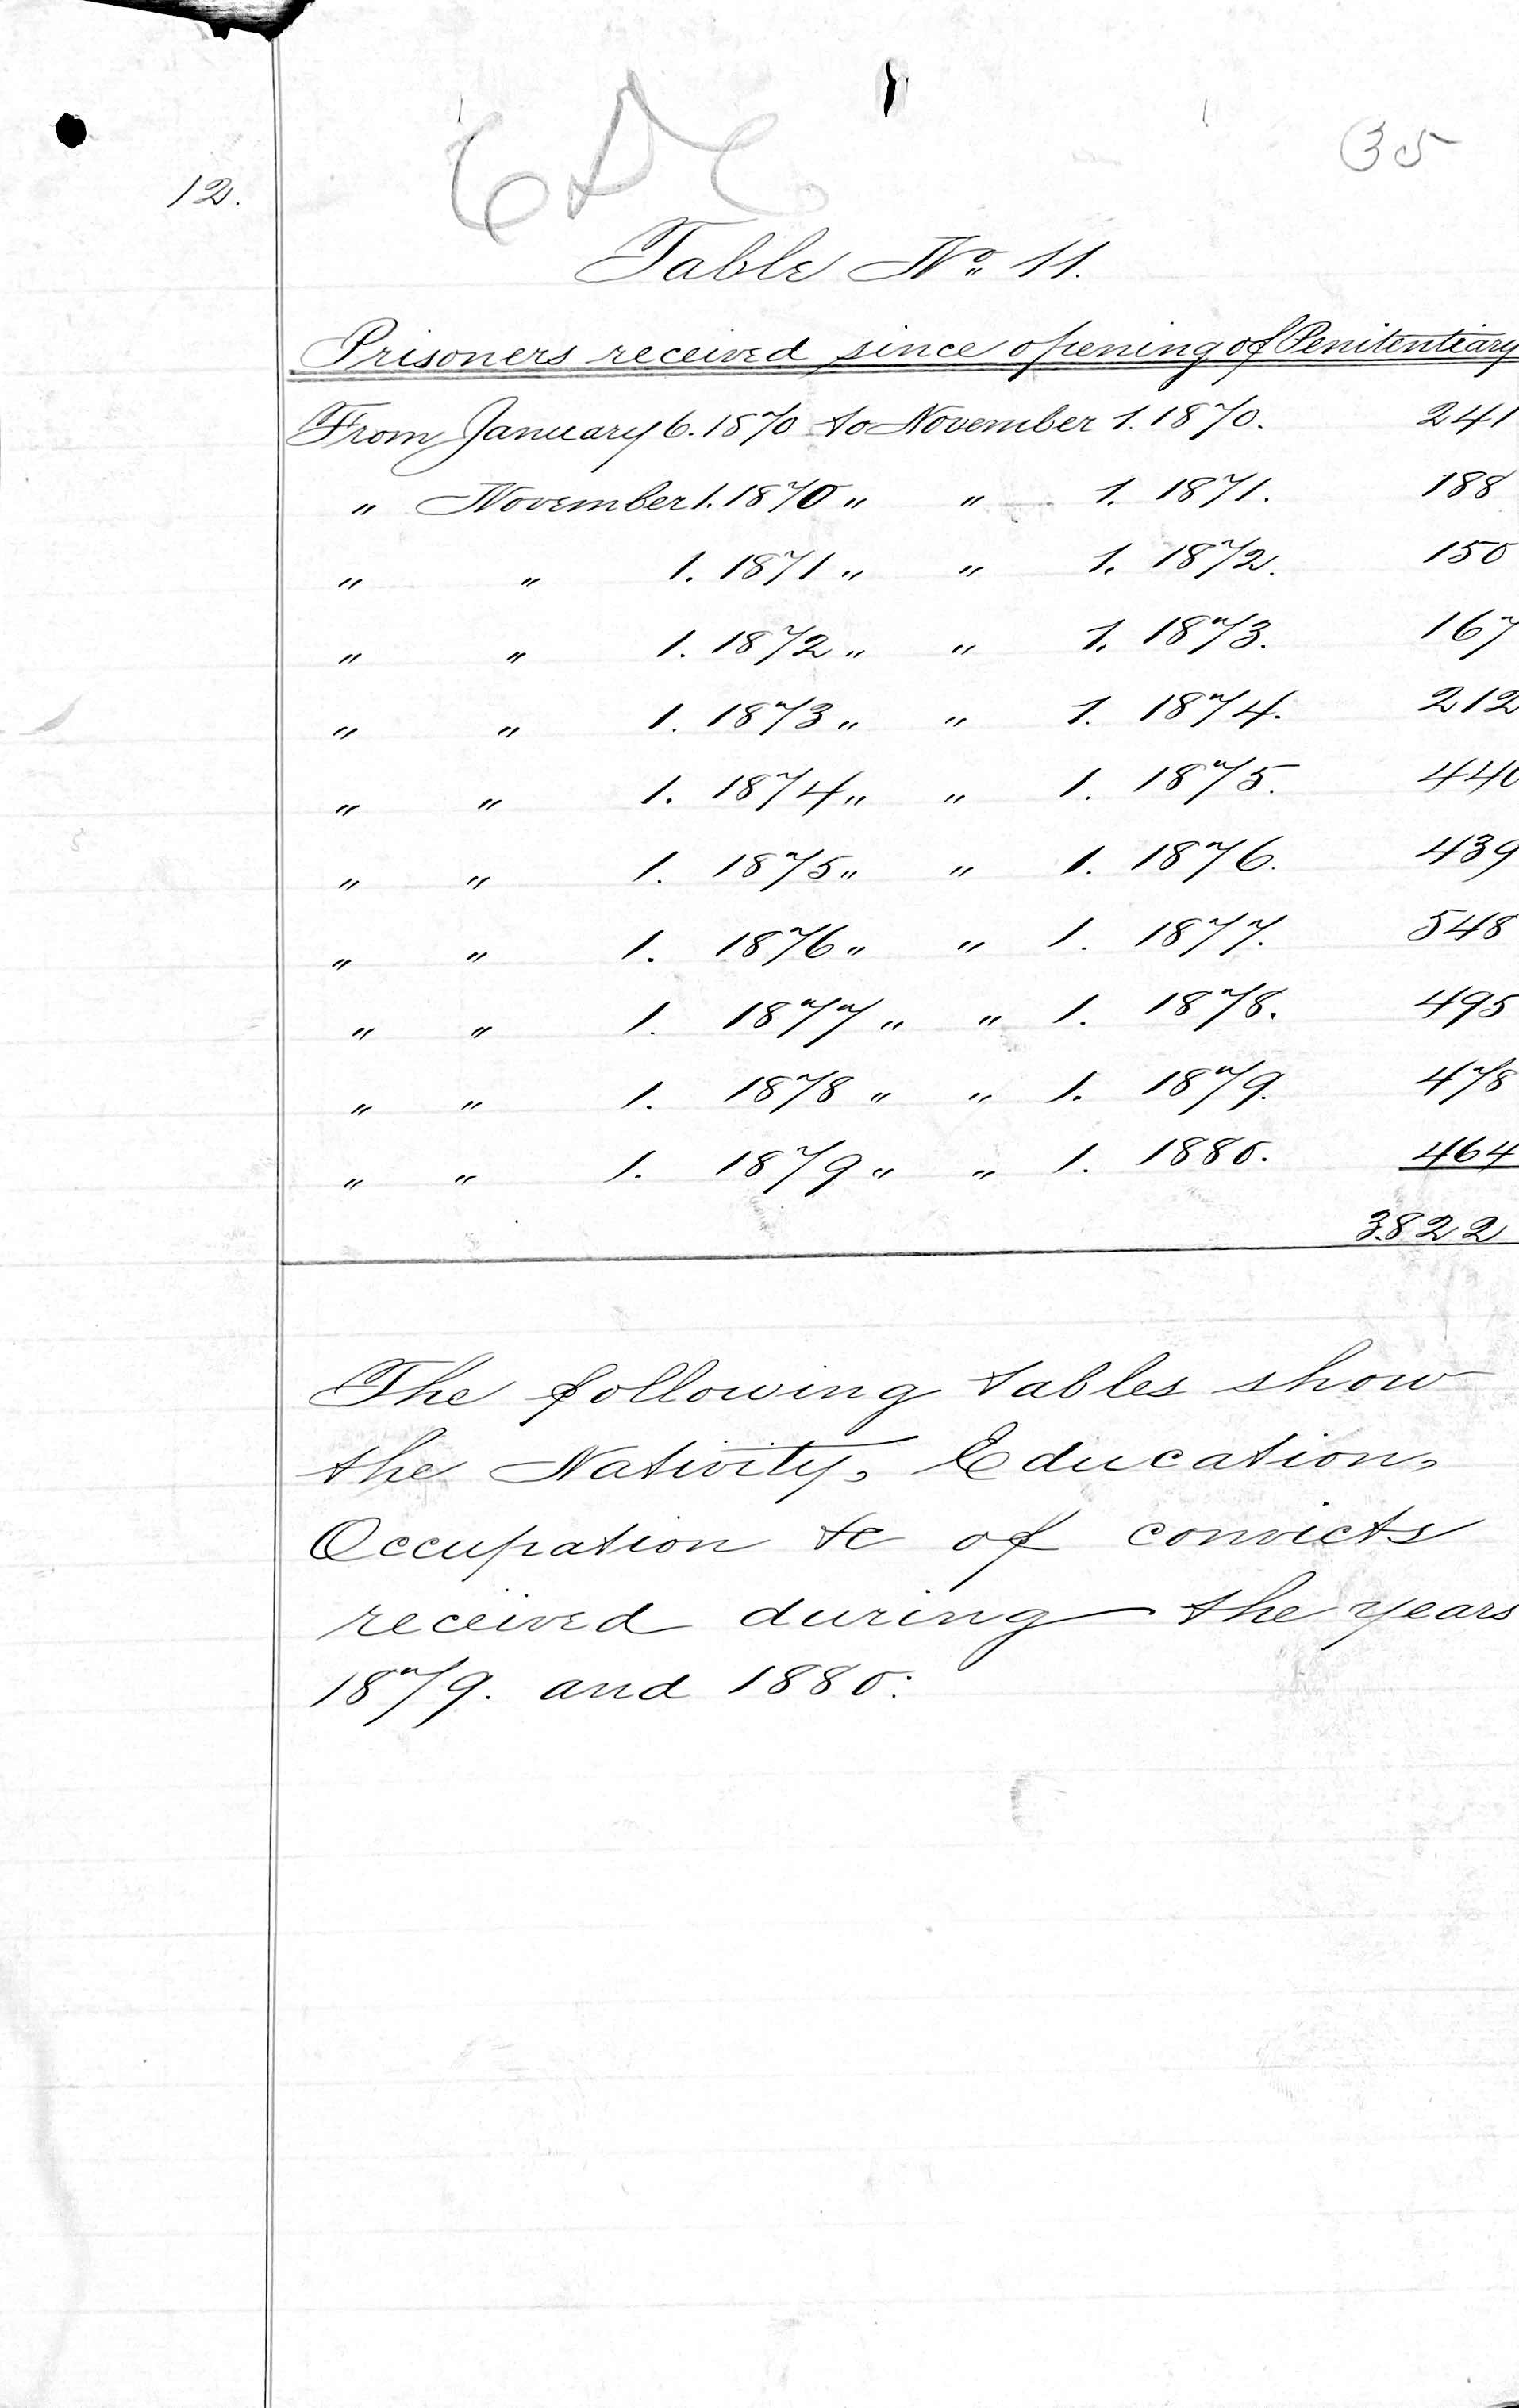 35
12.
Table No. 11.
Prisoners received since opening of Penitentiary
From January 6. 1870 to November 1. 1870. 241
" November 1. 1870 " " 1. 1871. 188
" " 1. 1871 " " 1. 1872. 150
" " 1. 1872 " " 1. 1873. 167
" " 1. 1873 " " 1. 1874. 212
" " 1. 1874 " " 1. 1875. 440
" " 1. 1875 " " 1. 1876. 439
" " 1. 1876 " " 1. 1877. 548
" " 1. 1877 " " 1. 1878. 495
" " 1. 1878 " " 1. 1879. 478
" " 1. 1879 " " 1. 1880. 464
3822
The following tables show
the Nativity, Education,
Occupation &c of convicts
received during the years
1879. and 1880: